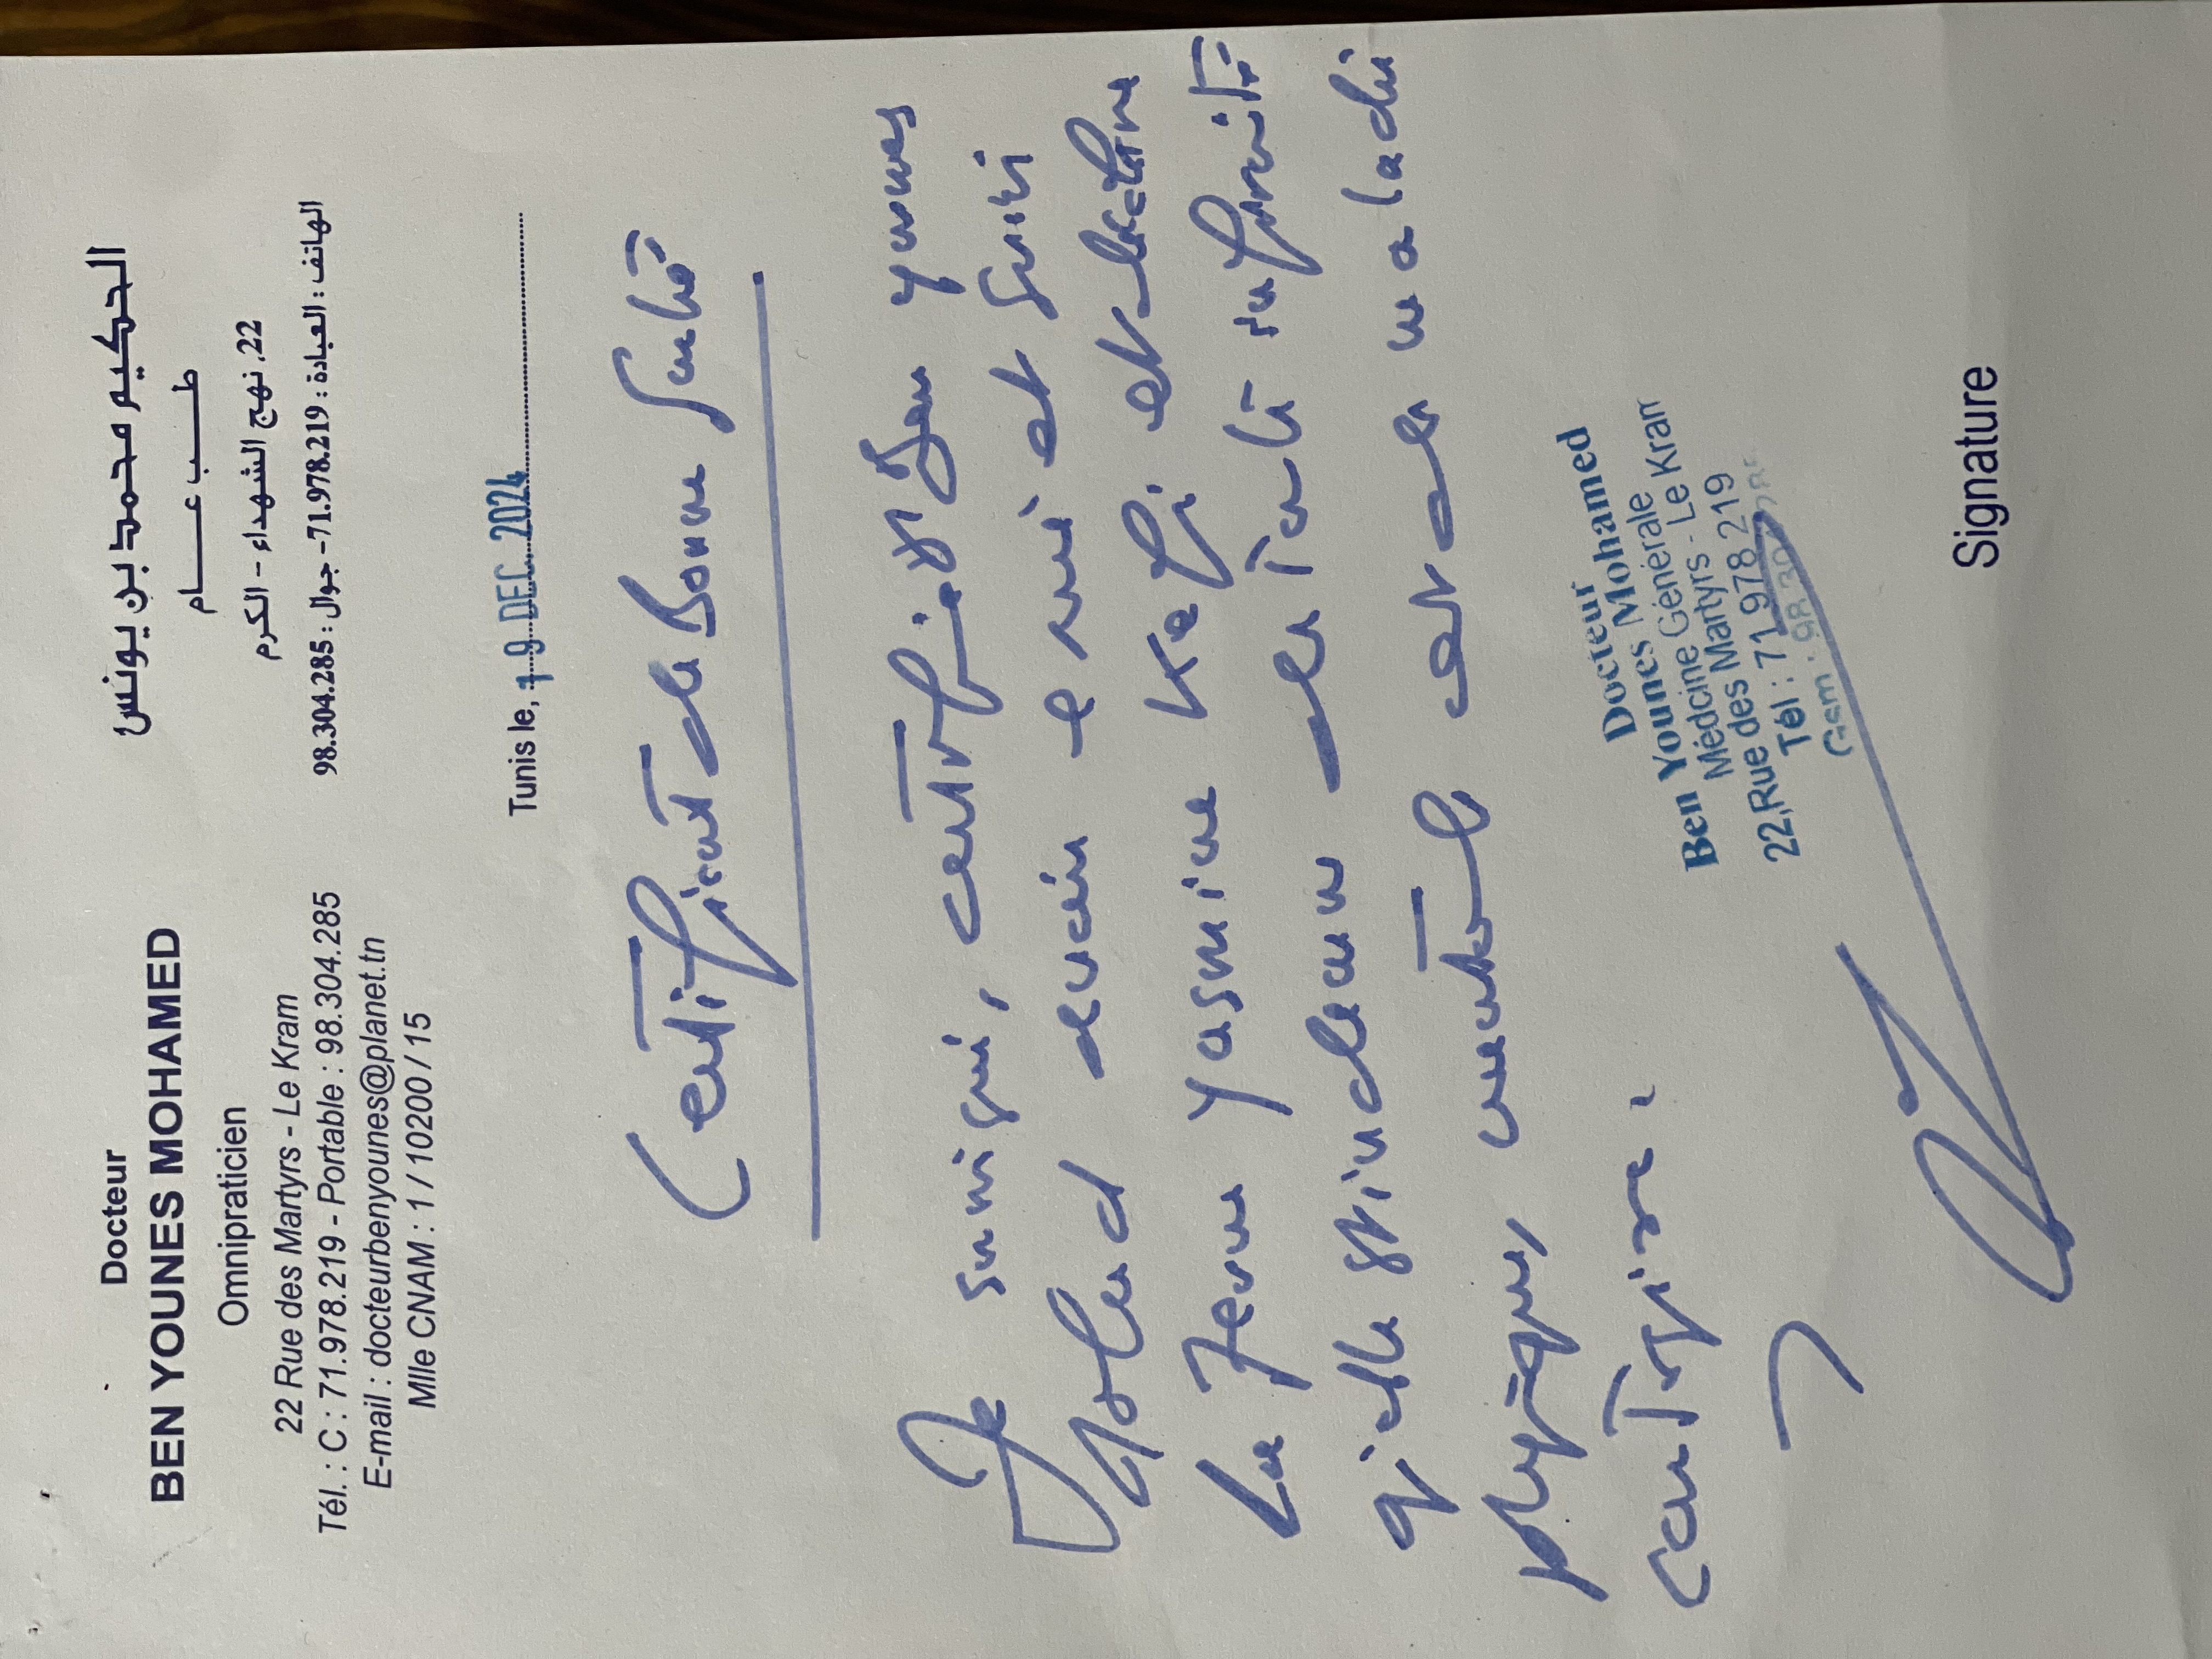 Docteur
BEN YOUNES MOHAMED
Omnipraticien
22 Rue des Martyrs - Le Kram
Tél. : C : 71.978.219 - Portable : 98.304.285
E-mail : docteurbenyounes@planet.tn
Mlle CNAM : 1 / 10200 / 15
الحكيم محمد بن يونس
طب عام
22، نهج الشهداء - الكرم
الهاتف : العيادة : 71.978.219 - جوال : 98.304.285
Tunis le, 19 DEC. 2024
Certificat de Bonne Santé
Je soussigné, certifie Dr Ben younes
Mohamed avoir examiné et suivi
La Jeune Yasmine et
qu'elle est en de santé
physique, mentale et de maladie
contagieuse.
Docteur
Ben Younes Mohamed
Médcine Générale
22,Rue des Martyrs - Le Kram
Tél : 71 978 219
Gsm : 98 304
Signature